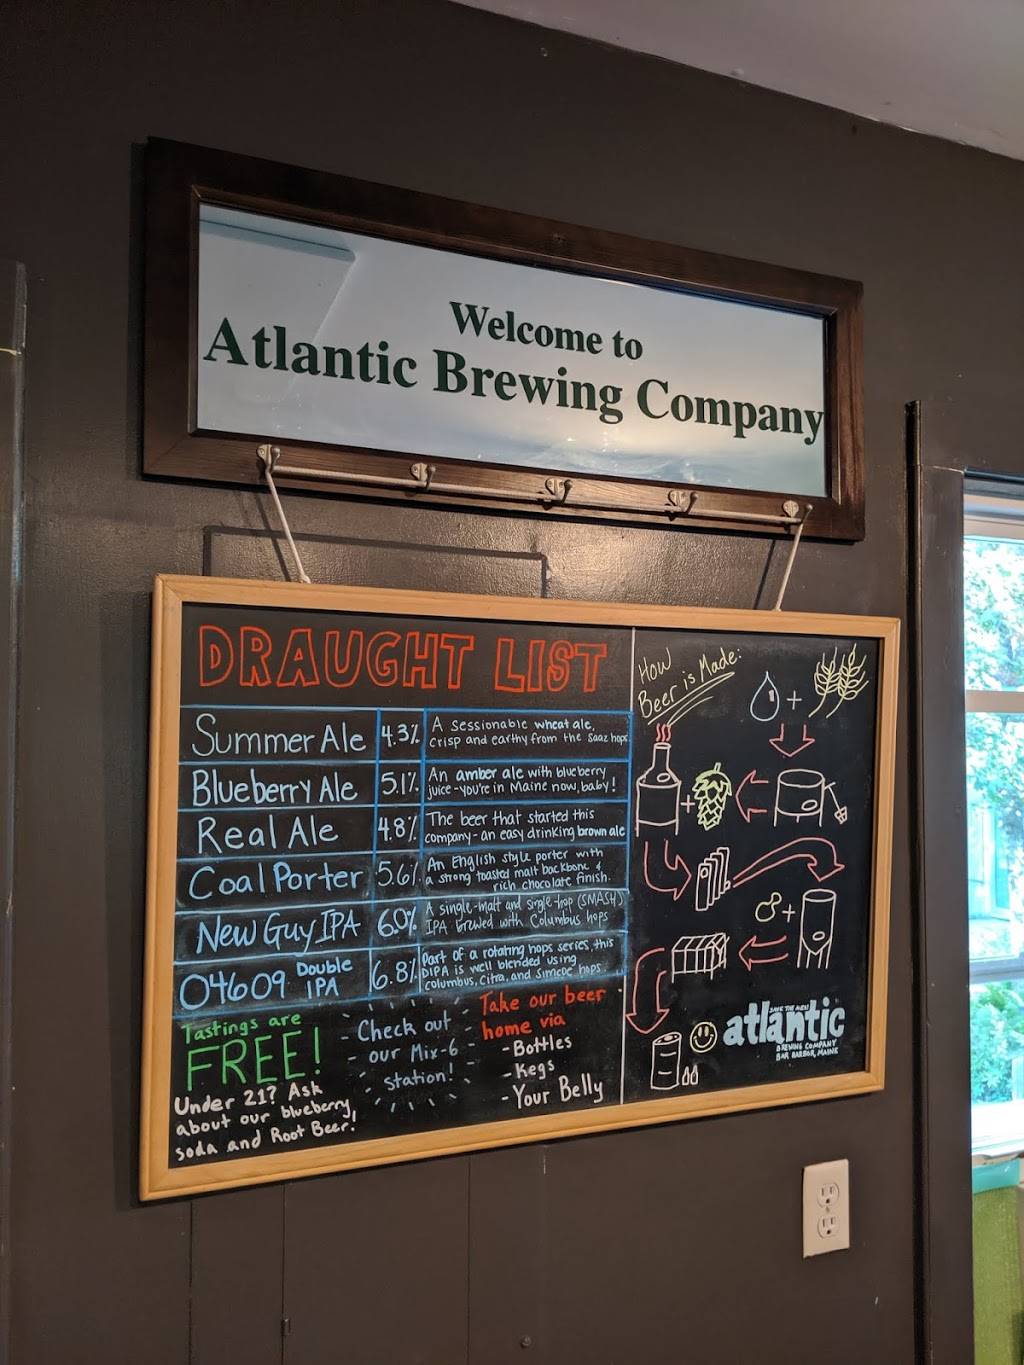 Welcome to
Atlantic Brewing Company
DRAUGHT LIST
Summer Ale 4.3% A sessionable wheat ale,
crisp and earthy from the saaz hops
Blueberry Ale 5.1% An amber ale with blueberry
juice - you're in Maine now, baby!
Real Ale 4.8% The beer that started this
company - an easy drinking brown ale
Coal Porter 5.6% An English style porter with
a strong toasted malt backbone &
rich chocolate finish.
New Guy IPA 6.0% A single-malt and single-hop (SMASH)
IPA brewed with Columbus hops
04609 Double IPA 6.8% Part of a rotating hops series, this
DIPA is well blended using
columbus, citra, and simcoe hops.
Tastings are
FREE!
Under 21? Ask
about our blueberry
soda and Root Beer!
Check out
our Mix-6
station!
Take our beer
home via
- Bottles
- Kegs
- Your Belly
How
Beer is Made:
atlantic
BREWING COMPANY
BAR HARBOR, MAINE